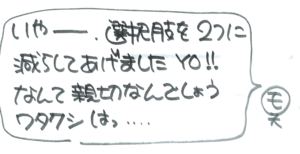 いやー、選択肢を2つに
減らしてあげましたYO!!
なんて親切なんでしょう
ワタクシはっ‥‥